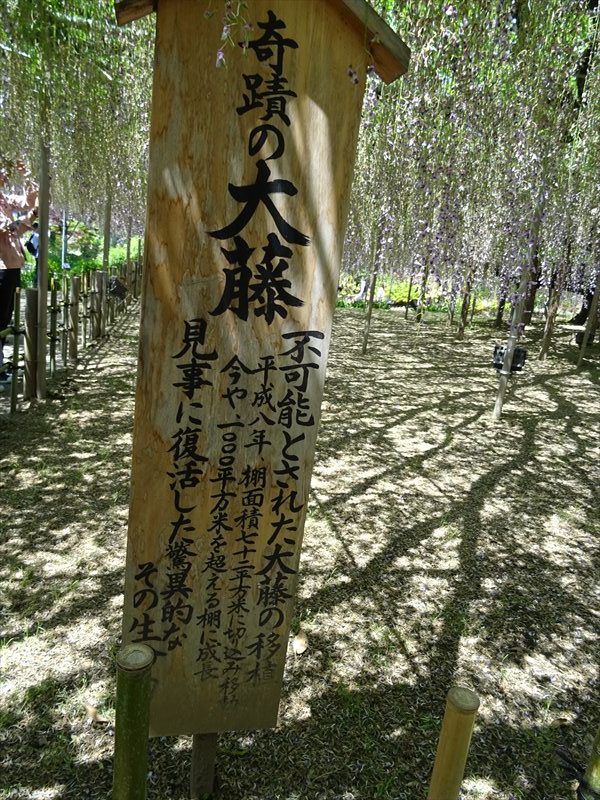 奇蹟の大藤
不可能とされた大藤の移植
平成八年 棚面積七十二平方米に切込み移植
今や一〇〇〇平方米を超える棚に成長
見事に復活した驚異的な
その生